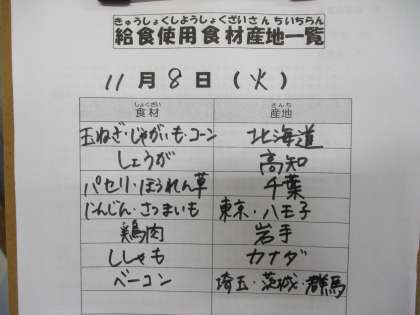 きゅうしょくしようしょくざいさんちいちらん
給食使用食材産地一覧
11月8日(火)
しょくざい さんち
食材 産地
玉ねぎ・じゃがいも・コーン 北海道
しょうが 高知
パセリ・ほうれん草 千葉
にんじん・さつまいも 東京・八王子
鶏肉 岩手
ししゃも カナダ
ベーコン 埼玉・茨城・群馬